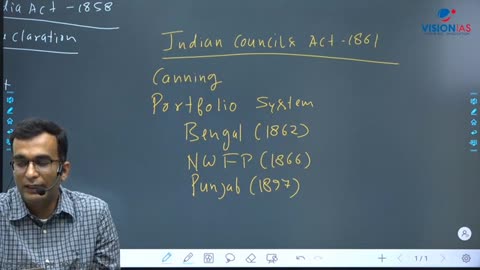 dia Act -1858
eclaration
VISION IAS
Indian Councils Act -1861
Canning
Portfolio System
Bengal (1862)
NWFP (1866)
Punjab (1897)
1/1